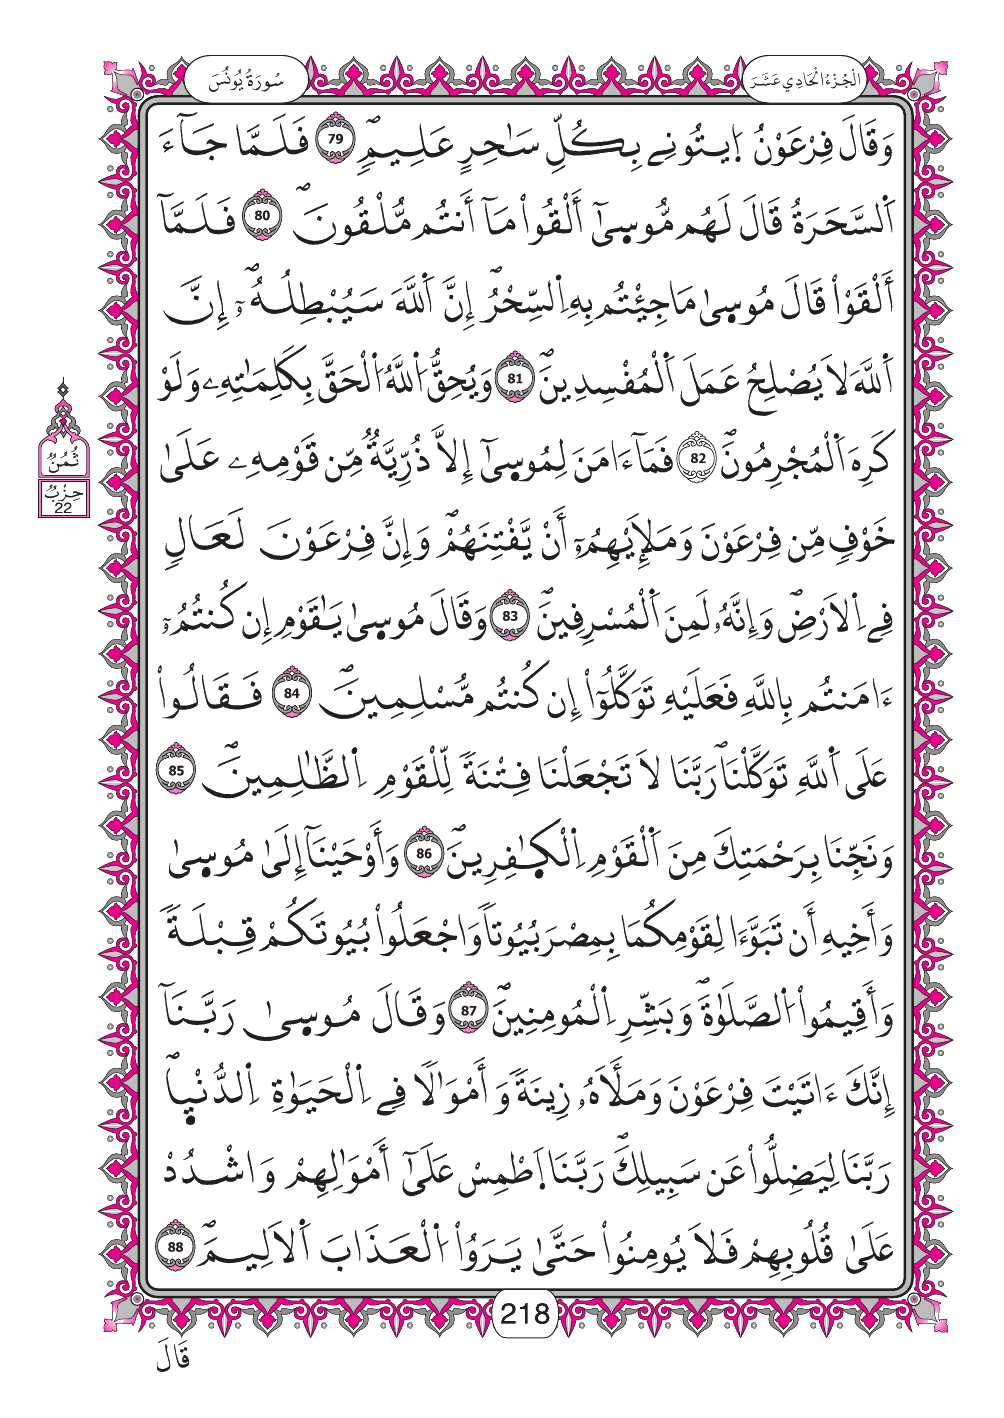 سُورَةُ يُونُسَ
اَلْجُزْءُ الْحَادِي عَشَرَ
وَقَالَ فِرْعَوْنُ اِيتُونِے بِكُلِّ سَٰحِرٍ عَلِيمٖۖ 79 فَلَمَّا جَآءَ
اَلسَّحَرَةُ قَالَ لَهُم مُّوس۪يٰٓ أَلْقُواْ مَآ أَنتُم مُّلْقُونَۖ 80 فَلَمَّآ
أَلْقَوْاْ قَالَ مُوس۪يٰ مَا جِئْتُم بِهِ اِ۬لسِّحْرُۖ إِنَّ اَ۬للَّهَ سَيُبْطِلُهُۥٓۖ إِنَّ
اَ۬للَّهَ لَا يُصْلِحُ عَمَلَ اَ۬لْمُفْسِدِينَۖ 81 وَيُحِقُّ اُ۬للَّهُ اُ۬لْحَقَّ بِكَلِمَٰتِهِۦ وَلَوْ
كَرِهَ اَ۬لْمُجْرِمُونَۖ 82 فَمَآ ءَامَنَ لِمُوس۪يٰٓ إِلَّا ذُرِّيَّةٞ مِّن قَوْمِهِۦ عَلَىٰ
خَوْفٖ مِّن فِرْعَوْنَ وَمَلَإِيْهِمُۥٓ أَنْ يَّفْتِنَهُمْۖ وَإِنَّ فِرْعَوْنَ لَعَالٖ
فِے اِ۬لَارْضِۖ وَإِنَّهُۥ لَمِنَ اَ۬لْمُسْرِفِينَۖ 83 وَقَالَ مُوس۪يٰ يَٰقَوْمِ إِن كُنتُمُۥٓ
ءَامَنتُم بِاللَّهِ فَعَلَيْهِ تَوَكَّلُوٓاْ إِن كُنتُم مُّسْلِمِينَۖ 84 فَقَالُواْ
عَلَى اَ۬للَّهِ تَوَكَّلْنَاۖ رَبَّنَا لَا تَجْعَلْنَا فِتْنَةٗ لِّلْقَوْمِ اِ۬لظَّٰلِمِينَۖ 85
وَنَجِّنَا بِرَحْمَتِكَ مِنَ اَ۬لْقَوْمِ اِ۬لْكٰ۪فِرِينَۖ 86 وَأَوْحَيْنَآ إِلَىٰ مُوس۪يٰ
وَأَخِيهِ أَن تَبَوَّءَا لِقَوْمِكُمَا بِمِصْرَ بُيُوتاٗ وَاجْعَلُواْ بُيُوتَكُمْ قِبْلَةٗ
وَأَقِيمُواْ اُ۬لصَّلَوٰةَۖ وَبَشِّرِ اِ۬لْمُومِنِينَۖ 87 وَقَالَ مُوس۪يٰ رَبَّنَآ
إِنَّكَ ءَاتَيْتَ فِرْعَوْنَ وَمَلَأَهُۥ زِينَةٗ وَأَمْوَٰلٗا فِے اِ۬لْحَيَوٰةِ اِ۬لدُّنْي۪اۖ
رَبَّنَا لِيَضِلُّواْ عَن سَبِيلِكَۖ رَبَّنَا اَ۪طْمِسْ عَلَىٰٓ أَمْوَٰلِهِمْ وَاشْدُدْ
عَلَىٰ قُلُوبِهِمْ فَلَا يُومِنُواْ حَتَّىٰ يَرَوُاْ اُ۬لْعَذَابَ اَ۬لَالِيمَۖ 88
ثُمُنٌ
حِزْبٌ
22
218
قَالَ